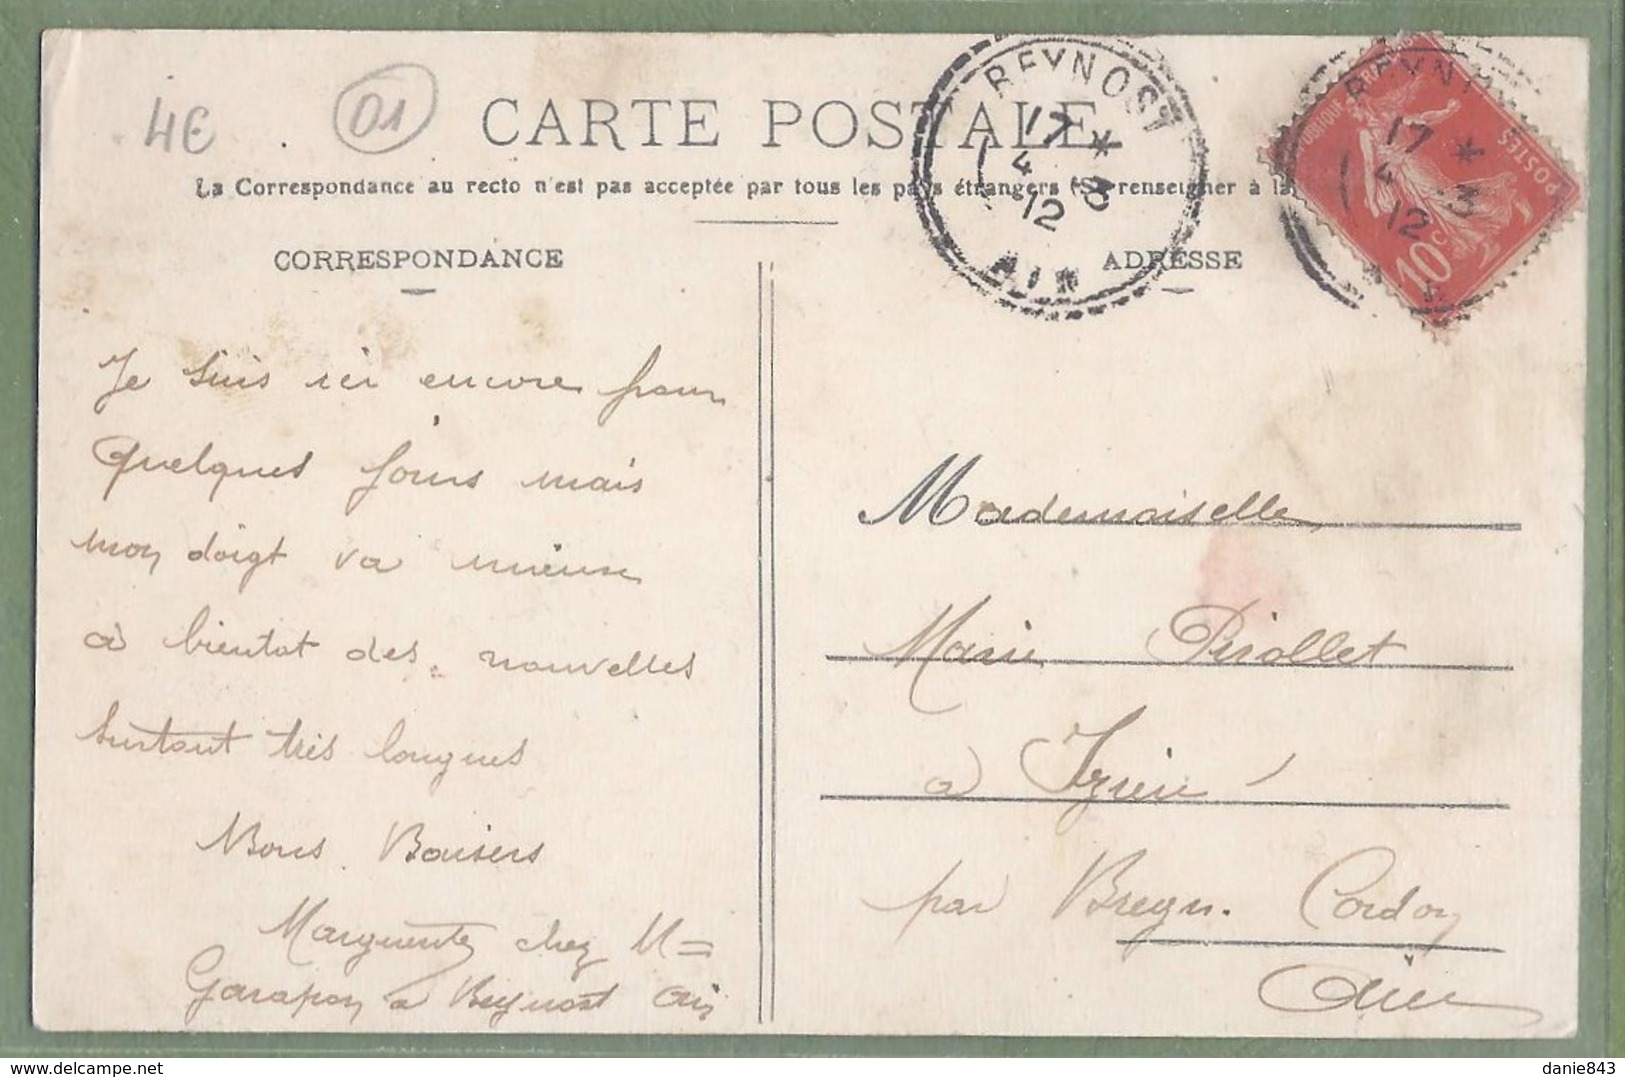 4€
01
CARTE POSTALE
La Correspondance au recto n'est pas acceptée par tous les pays étrangers (Se renseigner à la
CORRESPONDANCE
ADRESSE
BEYNOST
17 *
4 3
12
AIN
BEYN
17 *
4 3
12
POSTES
10c
Je suis ici encore pour
quelques jours mais
mon doigt va mieux
à bientot des nouvelles
surtout très longues
Bons Baisers
Marguerite chez M=
Garapon à Beynost Ain
Mademoiselle
Marie Pirollet
à Izieu
par Bregn. Cordon
Ain
danie843